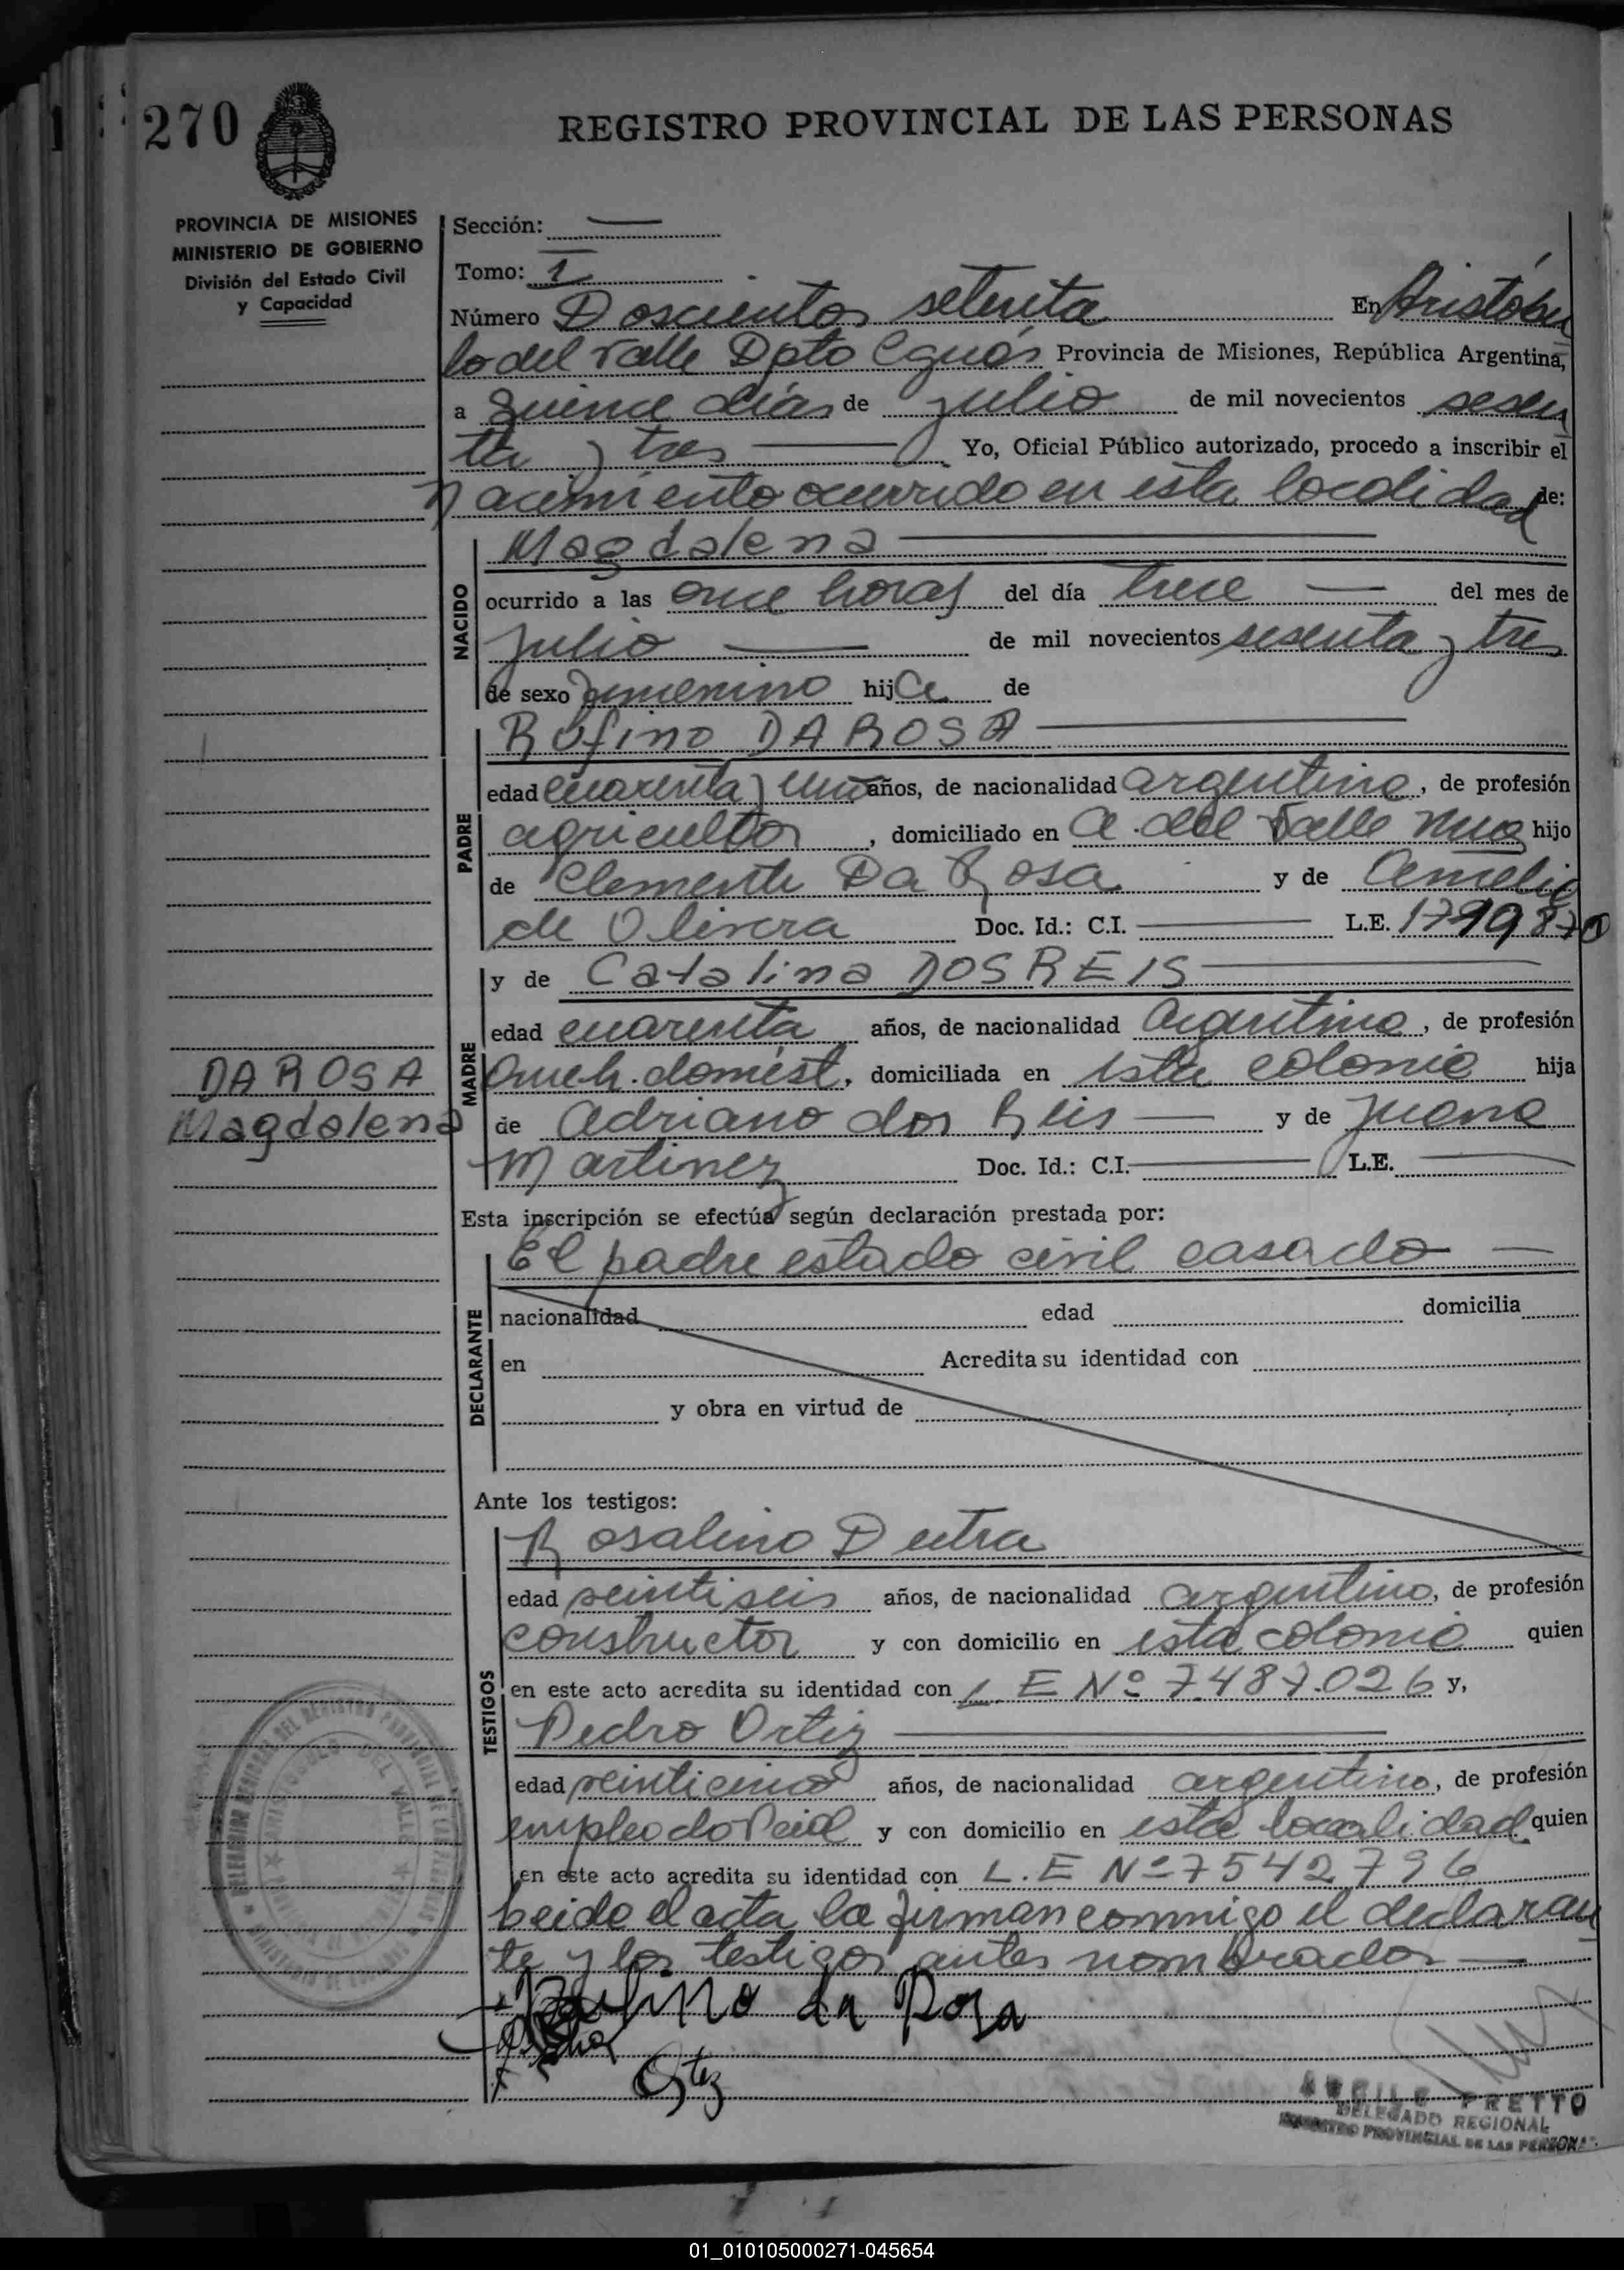 270
REGISTRO PROVINCIAL DE LAS PERSONAS
PROVINCIA DE MISIONES
MINISTERIO DE GOBIERNO
División del Estado Civil
y Capacidad
Sección: —
Tomo: I
Número Doscientos setenta En Aristóbu
lo del Valle Dpto Cguás Provincia de Misiones, República Argentina,
a quince días de julio de mil novecientos sesen
ta y tres — Yo, Oficial Público autorizado, procedo a inscribir el
nacimiento ocurrido en esta localidad de:
NACIDO
Magdalena —
ocurrido a las once horas del día trece — del mes de
julio — de mil novecientos sesenta y tres
de sexo femenino hija de
PADRE
Rufino DA ROSA —
edad cuarenta y uno años, de nacionalidad argentino, de profesión
agricultor, domiciliado en a. del Valle Mnes hijo
de Clemente Da Rosa y de Amelia
de Olivera Doc. Id.: C.I. — L.E. 1799870
MADRE
y de Catalina DOS REIS —
edad cuarenta años, de nacionalidad Argentina, de profesión
domést., domiciliada en esta colonia hija
de Adriano dos Reis — y de Juana
Martinez Doc. Id.: C.I. — L.E. —
DA ROSA
Magdalena
Esta inscripción se efectúa según declaración prestada por:
DECLARANTE
El padre estado civil casado —
nacionalidad edad domicilia
en Acredita su identidad con
y obra en virtud de
Ante los testigos:
TESTIGOS
Rosalino Dutra
edad veintiseis años, de nacionalidad argentino, de profesión
constructor y con domicilio en esta colonia quien
en este acto acredita su identidad con L E Nº 7.487.026 y,
Pedro Ortiz —
edad veinticinco años, de nacionalidad argentino, de profesión
empleado y con domicilio en esta localidad quien
en este acto acredita su identidad con L.E Nº 7542796
Leido el acta la firman conmigo el declaran
te y los testigos antes nombrados —
Rufino da Rosa
Ortiz
PRETTO
DELEGADO REGIONAL
REGISTRO PROVINCIAL DE LAS PERSONAS
01_010105000271-045654